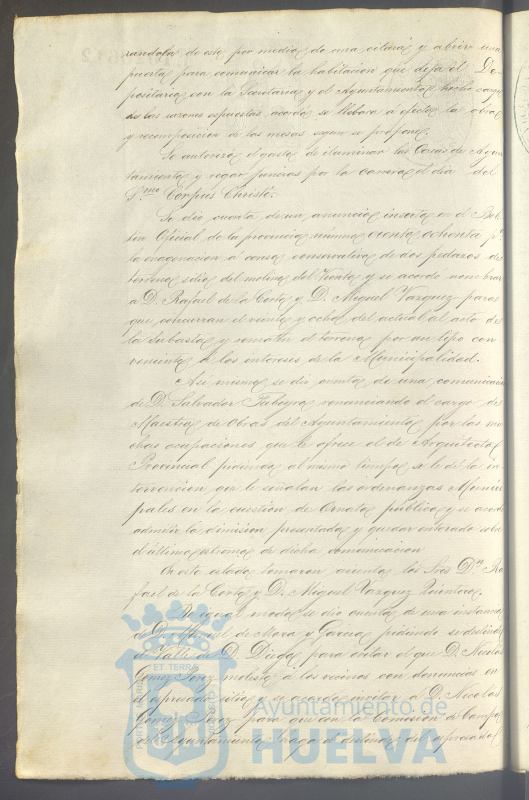 randola de este por medio de una citara y abrir una
puerta para comunicar la habitacion que deja el De-
positario con la Secretaria y el Ayuntamiento hecho cargo
de las razones expuestas acordó se llebara á efecto la obra
y recomposicion de las mesas segun se propone.
Se autorizó el gasto de iluminar las Casas de Ayun-
tamiento y regar juncias por la carrera el dia del
Smo Corpus Christi.
Se dió cuenta de un anuncio inserto en el Bole-
tin Oficial de la provincia número ciento ochenta pa
la enagenacion á censo conservativo de dos pedazos de
terreno sitio del molino del Viento y se acordó nombrar
a D. Rafael de la Corte y D. Miguel Vazquez para
que concurran el veinte y ocho del actual al acto de
la subasta y rematen el terreno por un tipo con-
veniente á los intereses de la Municipalidad.
Asi mismo se dió cuenta de una comunicacion
de D. Salvador renunciando el cargo de
Maestro de Obras del Ayuntamiento por las mu-
chas ocupaciones que le ofrece el de Arquitecto
Provincial pidiendo al mismo tiempo se le dé la in-
tervencion que le señalan las ordenanzas Munici-
pales en la cuestion de Ornato público y se acordó
admitir la dimision presentada y quedar enterado sobre
el último estremo de dicha comunicacion
En este estado tomaron asiento los Sres Dn Ra-
fael de la Corte y D. Miguel Vazquez Quintero.
De igual modo se dió cuenta de una instancia
de D. Manuel de Mora y Garcia pidiendo se deslinde
el Valle de D. Diego para evitar el que D. Nicolas
Gomez Perez moleste á los vecinos con denuncias en
el espresado sitio y se acordó invitar á D. Nicolas
Gomez Perez para que con la Comision de Campo
del Ayuntamiento haga el deslinde del espresado
ET TERRÆ
Ayuntamiento de
HUELVA